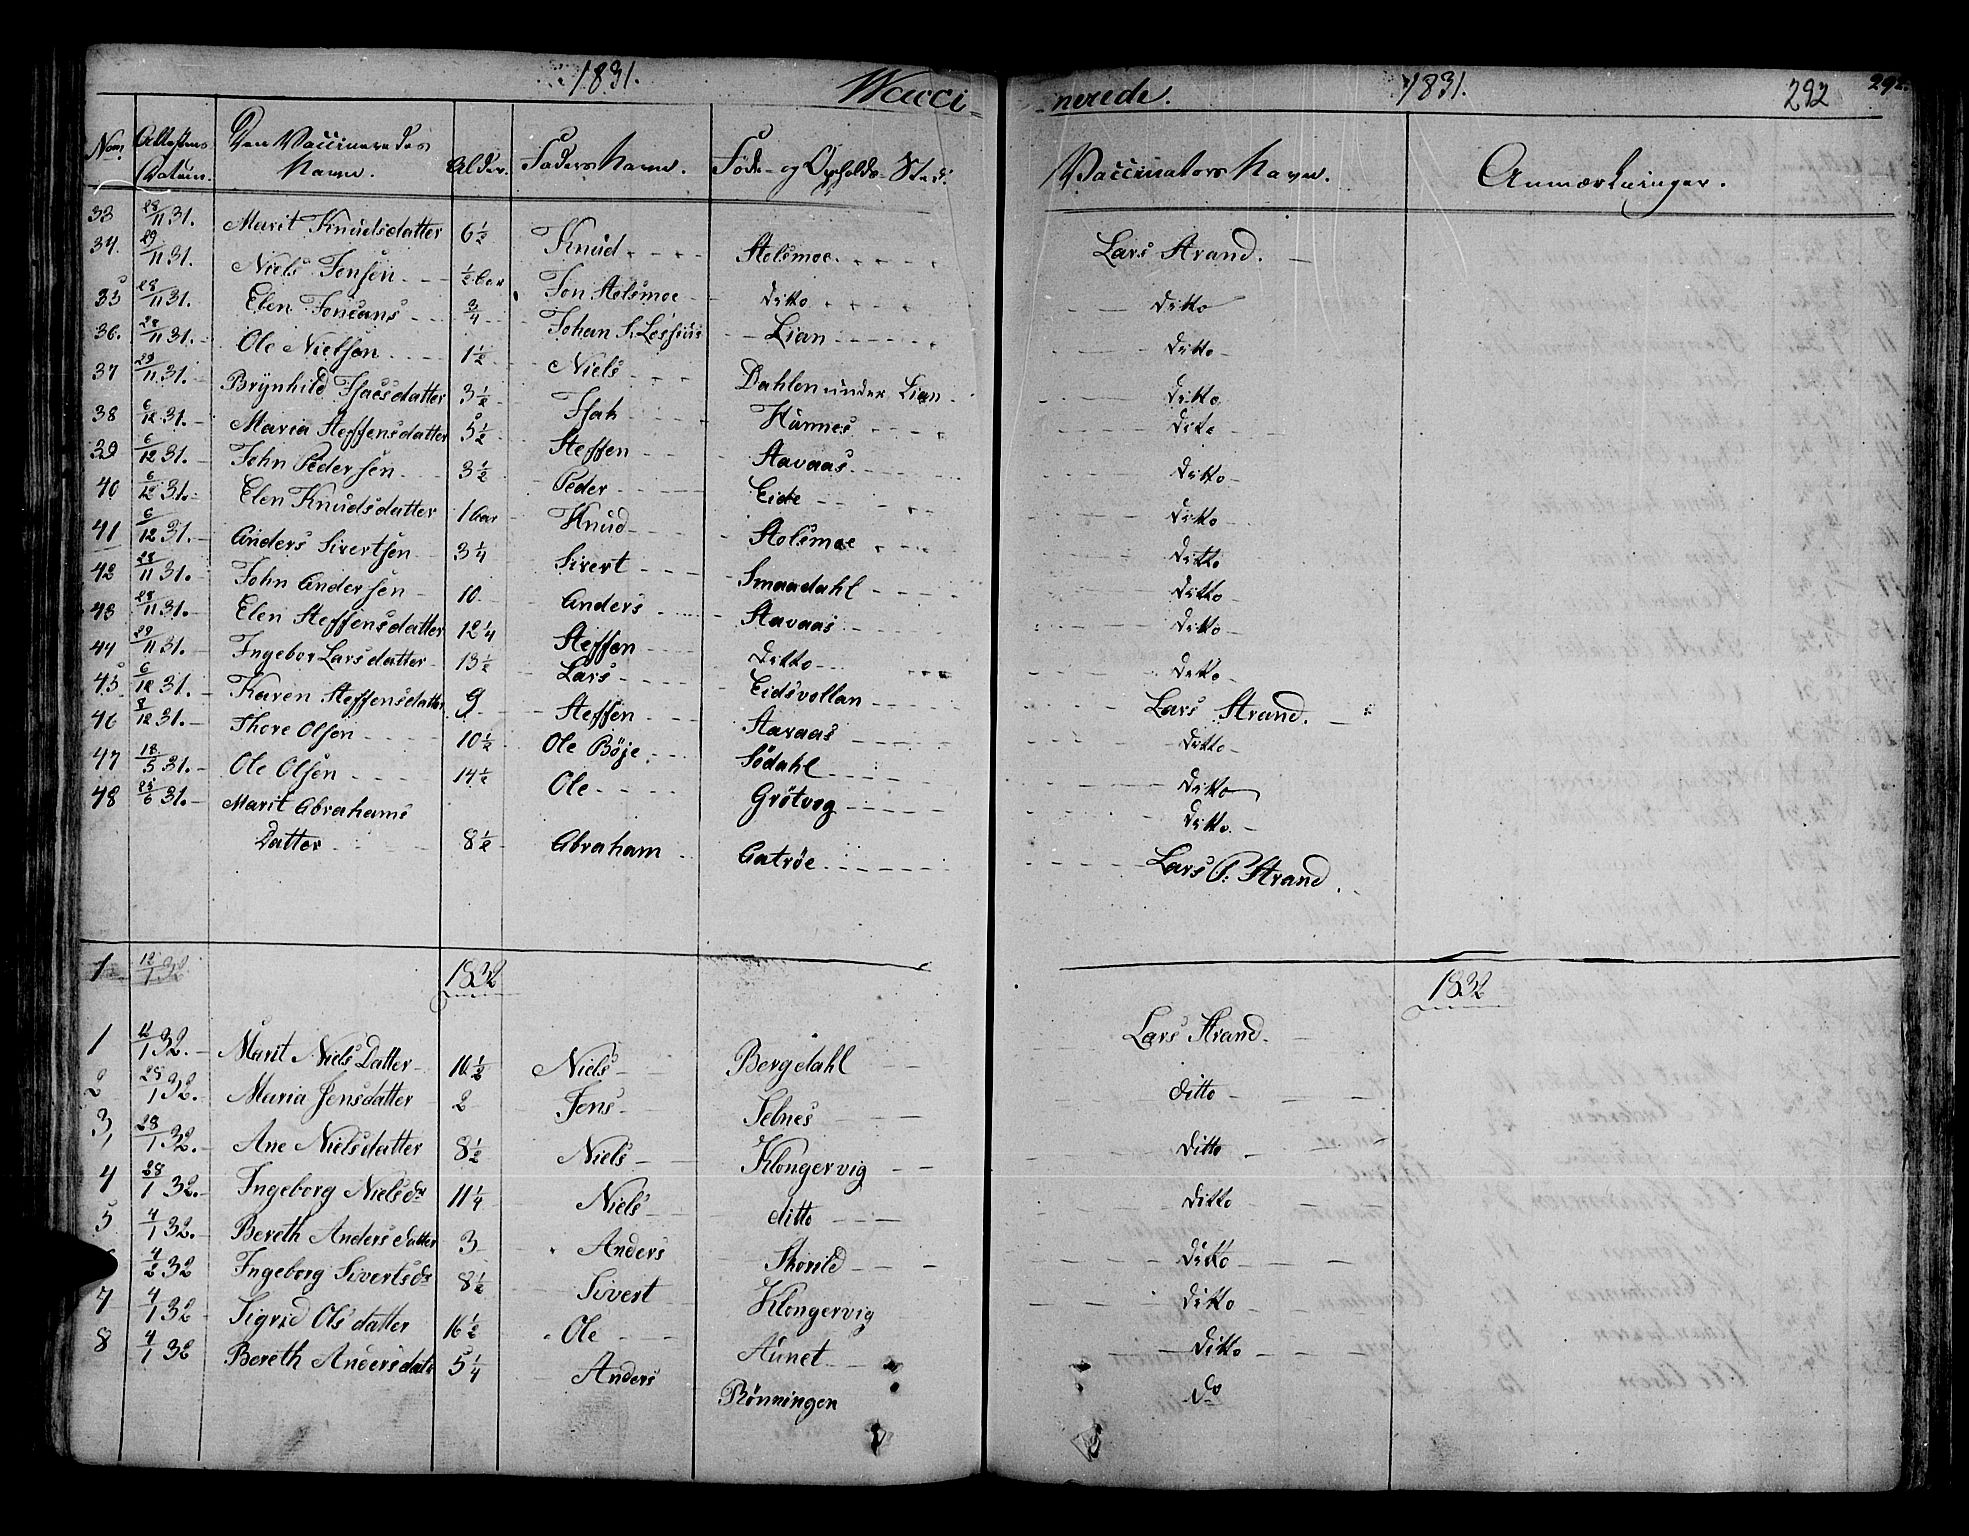 1831. Vacci
-nerede. 1831. 292 292.
Num. Attestens Datum. Den Vaccineredes Navn. Alder. Faders Navn. Føde- og Opholds-Sted. Vaccinators Navn. Anmærkninger.
33 28/11 31. Marit Knudsdatter 6 1/2 Knud Stolsmoe Lars Strand.
34. 29/11 31. Niels Jonsen 1/2 aar Jon Stolsmoe ditto ditto
35 28/11 31. Elen 3/4 Johan Lian ditto
36. 28/11 31. Ole Nielsen 1 1/2 Niels Dahlen under Lian ditto
37 29/11 31. Brynhild Isacsdatter 3 1/2 Isak Hünnes ditto
38 6/12 31. Maria Steffensdatter 5 1/2 Steffen Aavaas ditto
39 6/12 31. John Pedersen 3 1/2 Peder Eide ditto
40 6/12 31. Elen Knudsdatter 1 aar Knud Stolsmoe ditto
41 6/12 31. Anders Sivertsen 3 1/4 Sivert Smaadahl ditto
42 28/11 31. John Andersen 10 Anders Aavaas ditto
43 28/11 31. Elen Steffensdatter 12 1/4 Steffen ditto ditto
44 29/11 31. Ingebor Larsdatter 13 1/2 Lars Eidsvollan Lars Strand.
45 6/12 31. Karen Steffensdatter 9 Steffen Aavaas ditto
46 8/12 31. Thore Olsen 10 1/2 Ole Böje Södahl ditto
47 18/5 31. Ole Olsen 14 1/2 Ole Grötveg ditto
48 6 31. Marit Abrahams
Datter 8 1/2 Abraham Aatröe Lars P. Strand.
1 12/1 32 1832 1832
1 12/1 32. Marit Niels Datter 10 1/2 Niels Bergedahl Lars Strand.
2 28/1 32. Maria Jensdatter 2 Jens Selnes ditto
3, 28/1 32. Ane Nielsdatter 8 1/2 Niels Klongervig ditto
4 28/1 32. Ingeborg Nielsdr 11 1/4 Niels ditto ditto
5 4/1 32. Bereth Andersdatter 3 Anders Skorild ditto
4/2 32 Ingeborg Sivertsdr 8 1/2 Sivert Klongervig ditto
7 4/1 32 Sigrid Olsdatter 16 1/2 Ole Aunet ditto
8 4/1 32 Bereth Andersdatr 5 1/4 Anders Rönningen do